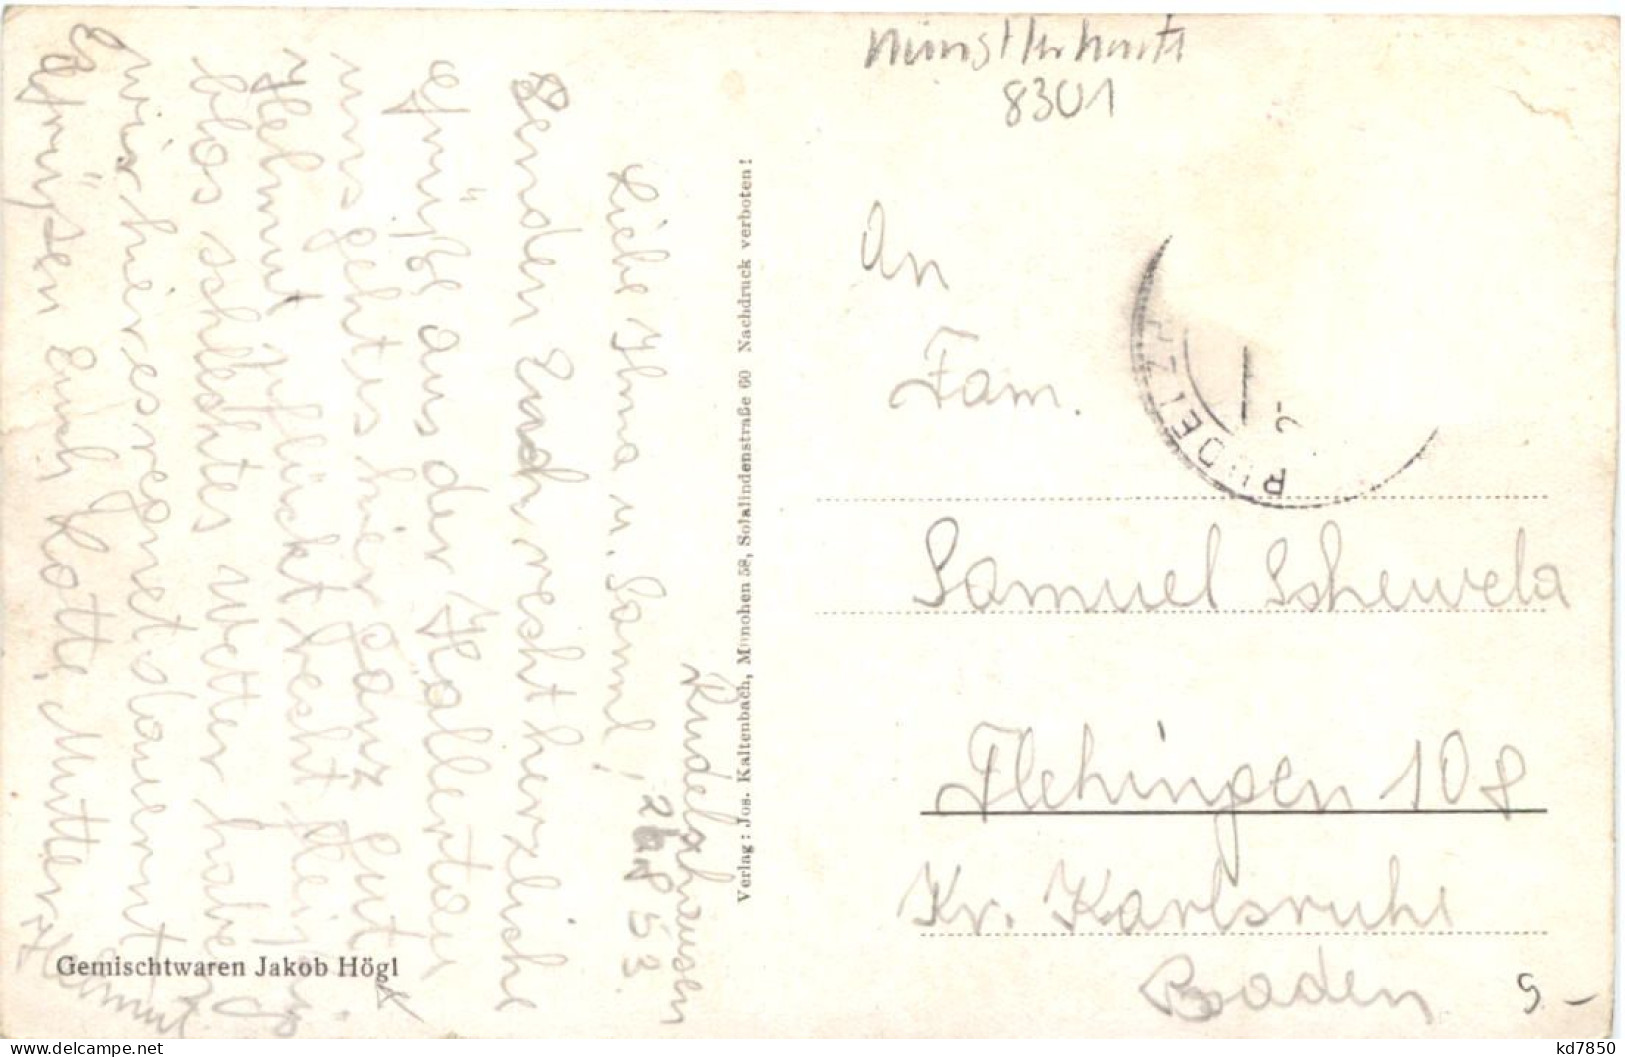 8301
Rudelzhausen
26.8.53.
Liebe Ihma u. Saml!
Senden Euch recht herzliche
Grüße aus der Hallertau
uns geht es hier ganz gut
Helmut pflückt recht fleißig
blos schlechtes Wetter haben
wir hier es regnet dauernt
Es grüßen Euch Lotte, Mutter
Helmut
Gemischtwaren Jakob Högl
Verlag: Jos. Kaltenbach, München 58, Solalindenstraße 60 Nachdruck verboten!
RUDELZ
An
Fam.
Samuel Schewela
Flehingen 108
Kr. Karlsruhe
Baden
S -
kd7850